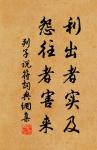 利出者实及
怨往者害来
列子说符词典网集